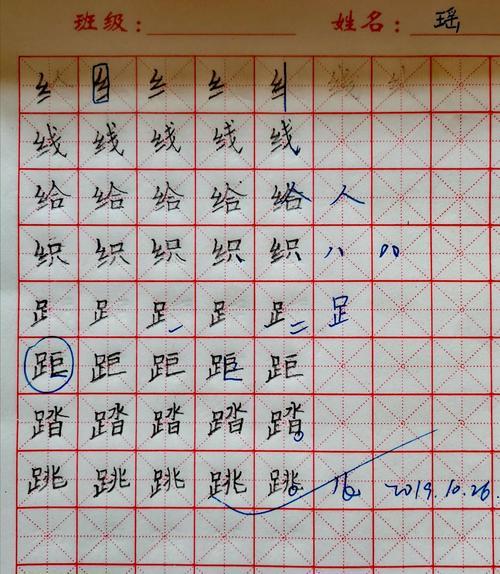 班级： 姓名：瑶
纟 纟 纟 纟 纟
线 线 线 线 线
给 给 给 给 给 人
织 织 织 织 织 八
𧾷 𧾷 𧾷 𧾷 𧾷 𧾷
距 距 距 距 距
踏 踏 踏 踏 踏
跳 跳 跳 跳 跳 2019.10.26